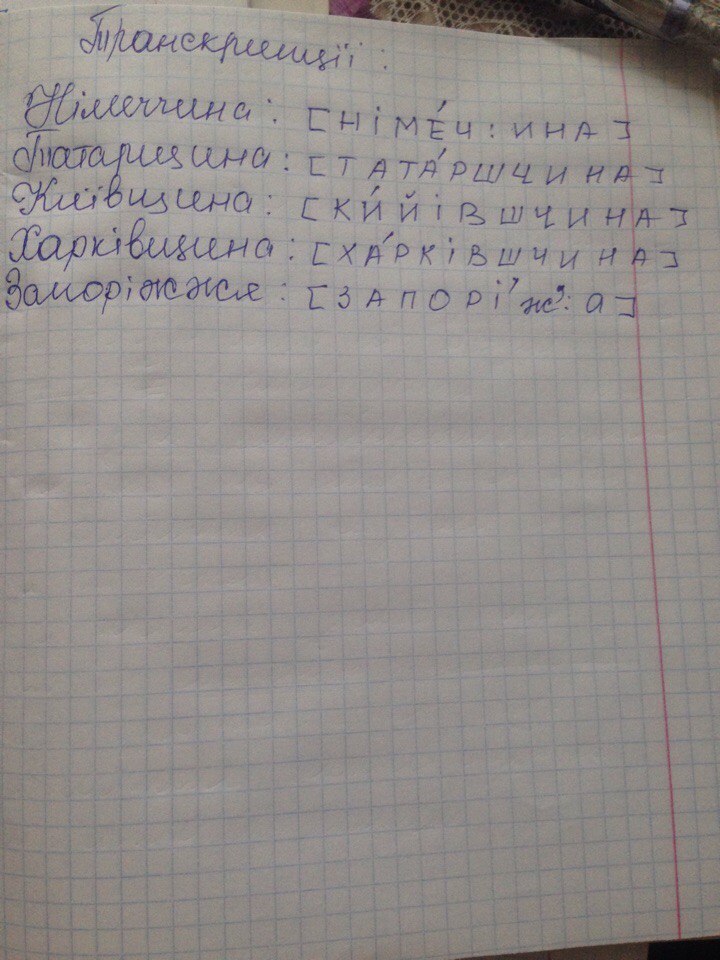 Транскрипції:
Німеччина: [НІМЕ́Ч:ИНА]
Татарщина: [ТАТА́РШЧИНА]
Київщина: [КИ́ЙІВШЧИНА]
Харківщина: [ХА́РКІВШЧИНА]
Запоріжжя: [ЗАПОРІ́Ж’:А]